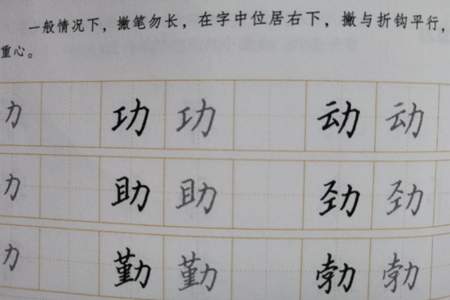 一般情况下，撇笔勿长，在字中位居右下，撇与折钩平行，
重心。
力 功 功 动 动
力 助 助 劲 劲
力 勤 勤 勃 勃